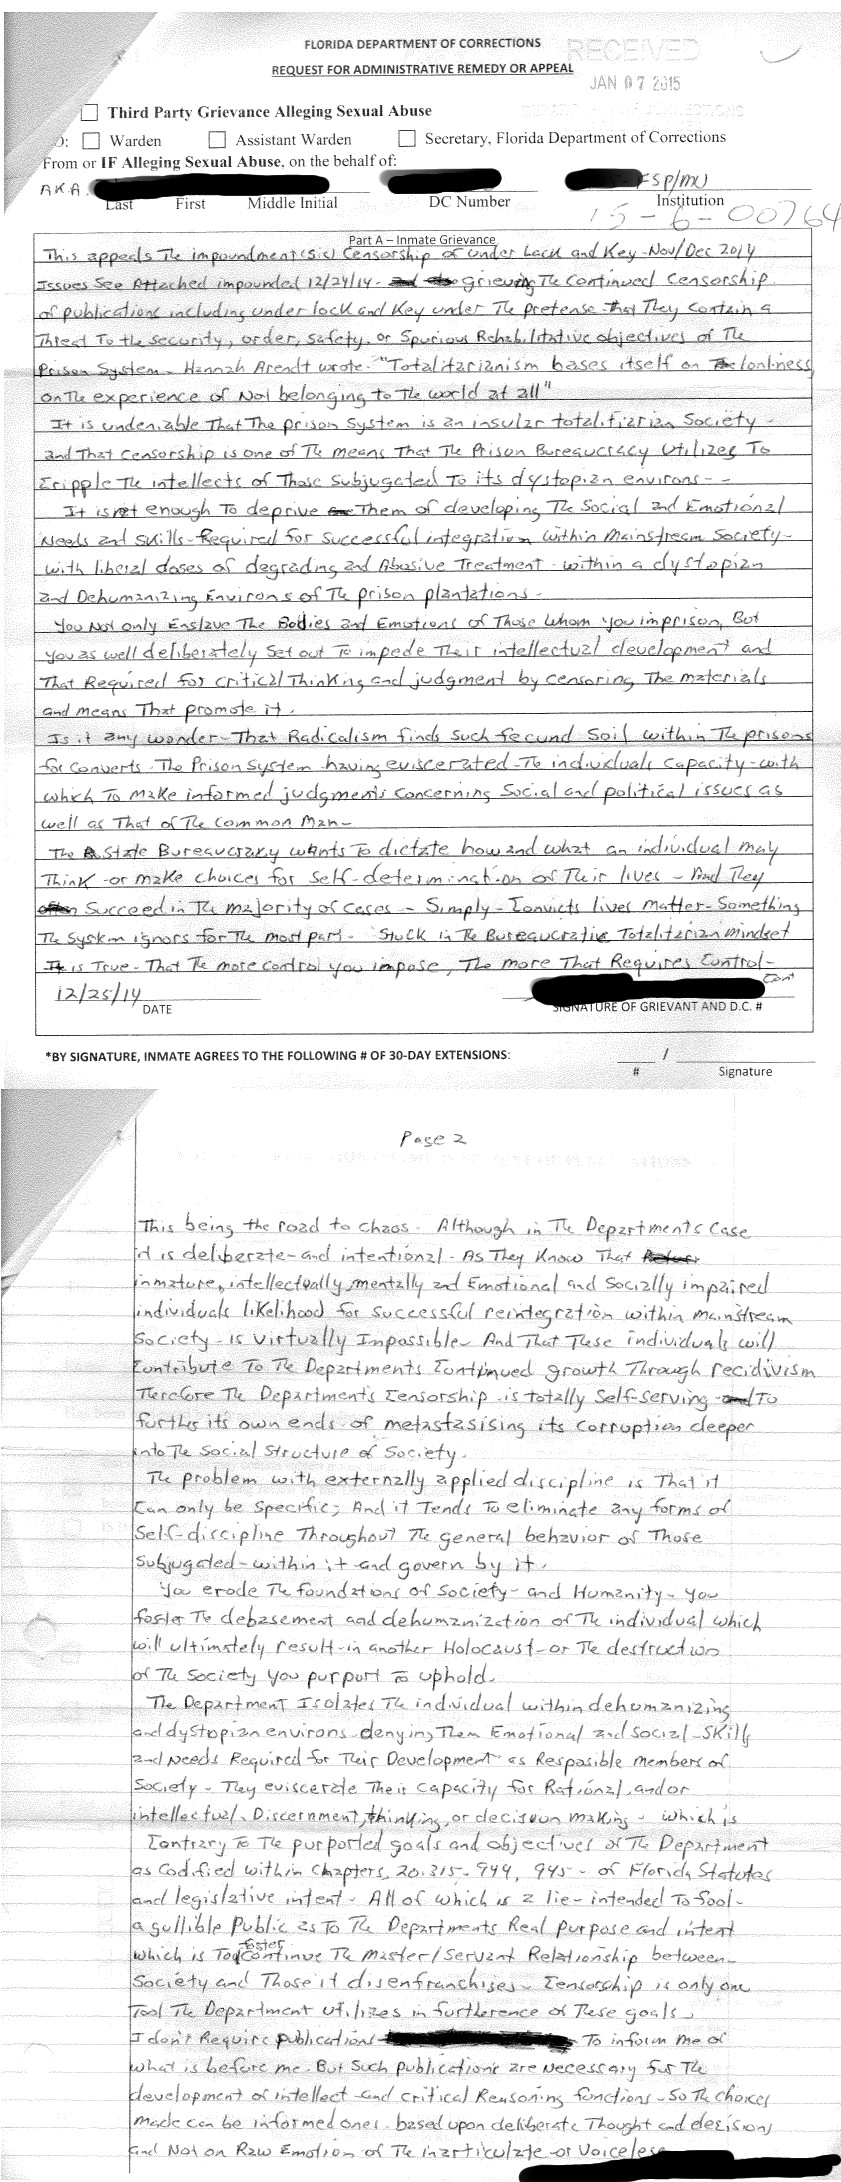 FLORIDA DEPARTMENT OF CORRECTIONS
REQUEST FOR ADMINISTRATIVE REMEDY OR APPEAL
RECEIVED
JAN 07 2015
Third Party Grievance Alleging Sexual Abuse
O: Warden Assistant Warden Secretary, Florida Department of Corrections
From or IF Alleging Sexual Abuse, on the behalf of:
AKA FSP/MU
Last First Middle Initial DC Number Institution
15-6-00764
Part A – Inmate Grievance
This appeals The impoundment(sis) Censorship of under Lock and Key - Nov/Dec 2014
Issues See Attached impounded 12/24/14 - grieving The Continued Censorship
of publications including under lock and Key under The pretense That They contain a
Threat To the security, order, safety, or Spurious Rehabilitative objectives of The
Prison System - Hannah Arendt wrote - "Totalitarianism bases itself on lonliness,
on The experience of Not belonging to The world at all"
It is undeniable That The prison System is an insular totalitarian Society -
and That Censorship is one of The means That The Prison Bureaucracy Utilizes To
Cripple The intellects of Those Subjugated To its dystopian environs - -
It is not enough To deprive Them of developing The Social and Emotional
Needs and Skills - Required for Successful integration within Mainstream Society -
with liberal doses of degrading and Abusive Treatment - within a dystopian
and Dehumanizing Environs of The prison plantations -
You Not only Enslave The Bodies and Emotions of Those Whom you imprison, But
you as well deliberately Set out To impede Their intellectual development and
That Required for critical Thinking and judgment by censoring The materials
and means That promote it.
Is it any wonder - That Radicalism finds such fecund Soil within The prisons
for Converts - The Prison System having eviscerated - The individuals Capacity - with
which To make informed judgments concerning Social and political issues as
well as That of The Common Man -
The State Bureaucracy wants To dictate how and what an individual may
Think - or make choices for Self-determination of Their lives - And They
Succeed in The majority of cases - Simply - Convicts lives matter - Something
The System ignors for The most part - Stuck in The Bureaucratic Totalitarian mindset
It is True - That The more control you impose, The more That Requires Control -
Cont
12/25/14
DATE SIGNATURE OF GRIEVANT AND D.C. #
*BY SIGNATURE, INMATE AGREES TO THE FOLLOWING # OF 30-DAY EXTENSIONS: /
# Signature
Page 2
This being the road to chaos - Although in The Departments Case
it is deliberate - and intentional - As They Know That
inmature, intellectually, mentally and Emotional and Socially impaired
individuals likelihood for successful reintegration within mainstream
Society - is virtually Impossible - And That These individuals will
Contribute To The Departments Continued growth Through recidivism
Therefore The Departments Censorship is totally Self-serving - To
further its own ends of metastasising its corruption deeper
into The Social Structure of Society.
The problem with externally applied discipline is That it
Can only be specific; And it Tends To eliminate any forms of
Self-discipline Throughout The general behavior of Those
Subjugated - within it - and govern by it.
You erode The foundations of Society - and Humanity - you
foster The debasement and dehumanization of The individual which
will ultimately result - in another Holocaust - or The destruction
of The Society you purport To uphold.
The Department Isolates The individual within dehumanizing
and dystopian environs denying Them Emotional and Social - Skills
and Needs Required for Their Development as Resposible members of
Society - They eviscerate Their capacity for Rational, and/or
intellectual, Discernment, thinking, or decision making - which is
Contrary To The purported goals and objectives of The Department
as Codified within Chapters, 20.315 - 944, 945 - of Florida Statutes
and legislative intent - All of which is a lie - intended To fool -
a gullible Public as To The Departments Real purpose and intent
which is To foster continue The Master/Servant Relationship between
Society and Those it disenfranchises - Censorship is only one
Tool The Department utilizes in furtherence of These goals.
I don't Require publications To inform me of
what is before me - But Such publications are Necessary for The
development of intellect - and critical Reasoning functions - So The choices
made can be informed ones - based upon deliberate Thought and decisions
and Not on Raw Emotion of The inarticulate or voiceless